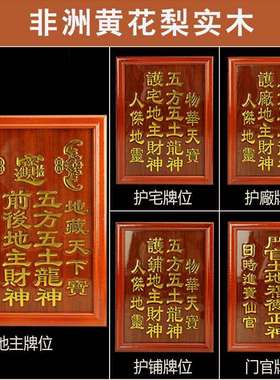 非洲黄花梨实木
地藏天下寶
五方五土龍神
前後地主財神
地主牌位
物華天寶
五方五土龍神
護宅地主財神
人傑地靈
护宅牌位
護廠地主財
人傑地靈
护廠牌位
物華天寶
五方五土龍神
護鋪地主財神
人傑地靈
护铺牌位
日時進寶仙官
门官牌